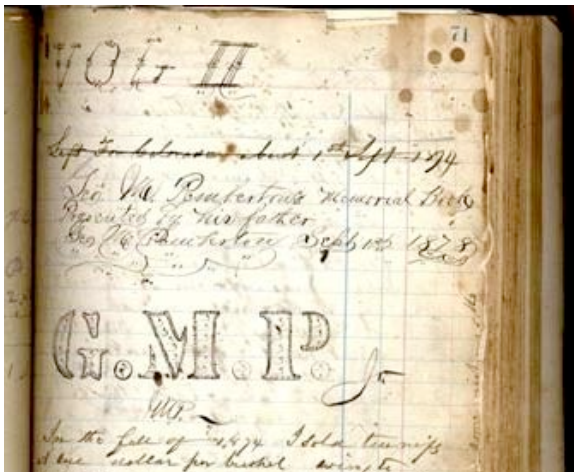 71
VOL II
Left For about 1st Sept 1894
Geo M. Pemberton's Memorial Book
Presented by His father
Geo M Pemberton Sept 1st 1878
G.M.P. Jr
In the fall of 1874 I sold turnips
at one dollar per bushel